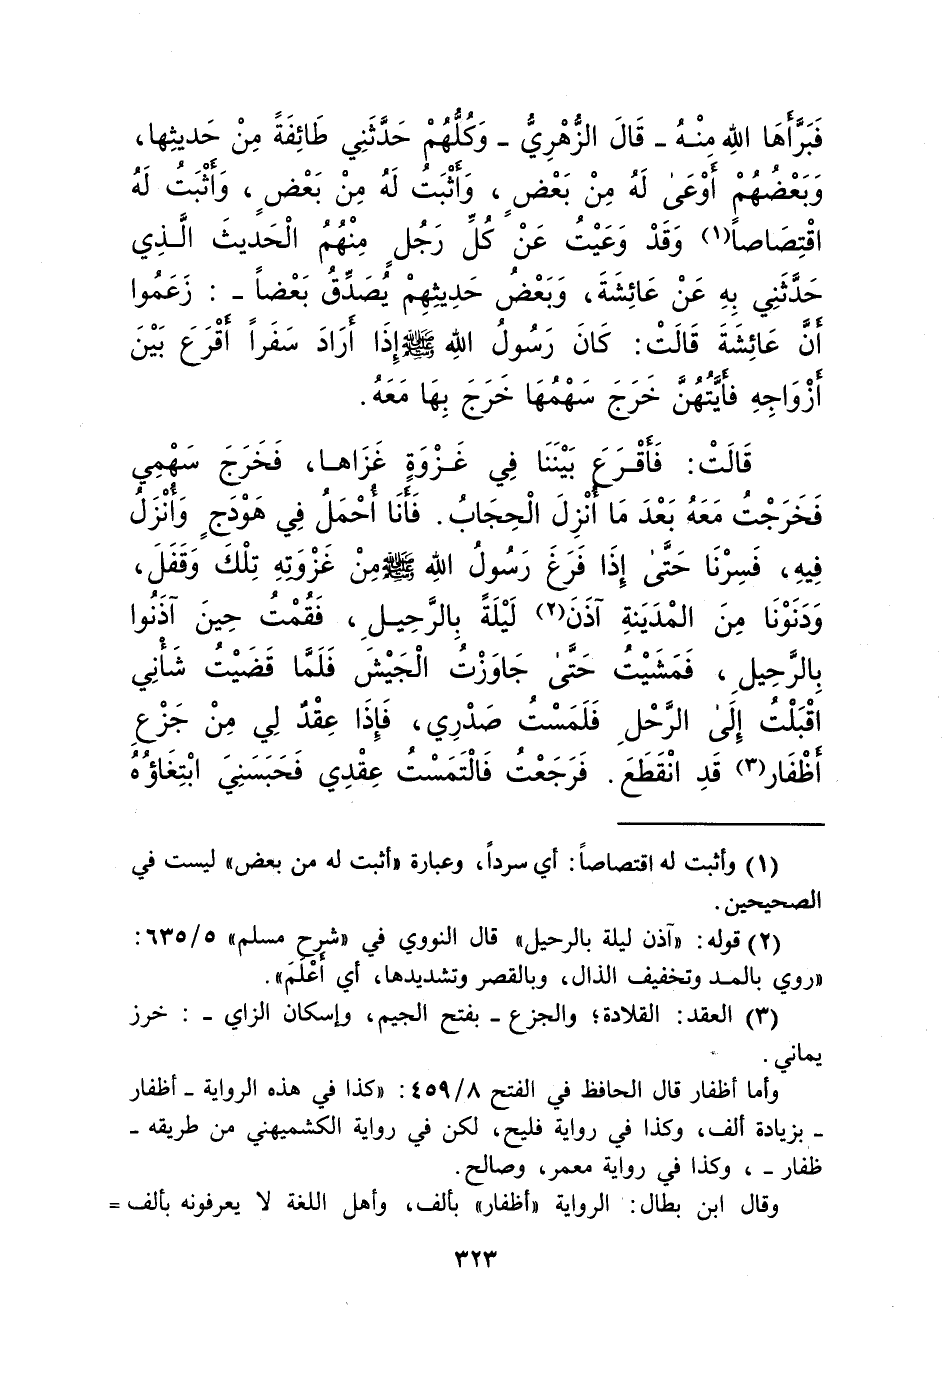 فَبَرَّأَهَا اللهِ مِنْـهُ ـ قَالَ الزُّهْرِيُّ ـ وَكُلُّهُمْ حَدَّثَنِي طَائِفَةً مِنْ حَديثِها،
وَبَعْضُهُمْ أَوْعَىٰ لَهُ مِنْ بَعْضٍ، وَأَثْبَتُ لَهُ مِنْ بَعْضٍ، وَأَثْبَتُ لَهُ
اقْتِصَاصاً(١) وَقَدْ وَعَيْتُ عَنْ كُلِّ رَجُلٍ مِنْهُمُ الْحَديثَ الَّـذِي
حَدَّثَنِي بِهِ عَنْ عَائِشَةَ، وَبَعْضُ حَدِيثِهِمْ يُصَدِّقُ بَعْضاً ـ : زَعَمُوا
أَنَّ عَائِشَةَ قَالَتْ: كَانَ رَسُولُ اللهِ ﷺ إِذَا أَرَادَ سَفَراً أَقْرَعَ بَيْنَ
أَزْوَاجِهِ فأَيَّتُهُنَّ خَرَجَ سَهْمُهَا خَرَجَ بِهَا مَعَهُ.
قَالَتْ: فَأَقْـرَعَ بَيْنَنَا فِي غَـزْوَةٍ غَزَاهـا، فَخَرَجَ سَهْمِي
فَخَرَجْتُ مَعَهُ بَعْدَ مَا أُنْزِلَ الْحِجَابُ. فَأَنَا أُحْمَلُ فِي هَوْدَجٍ وَأُنْزَلُ
فِيهِ، فَسِرْنَا حَتَّىٰ إِذَا فَرَغَ رَسُولُ اللهِ ﷺ مِنْ غَزْوَتِهِ تِلْكَ وَقَفَلَ،
وَدَنَوْنَا مِنَ الْمَدَينَةِ آذَنَ(٢) لَيْلَةً بِالرَّحِيـلِ، فَقُمْتُ حِينَ آذَنُوا
بِالرَّحِيلِ، فَمَشَيْتُ حَتَّىٰ جَاوَزْتُ الْجَيْشَ فَلَمَّا قَضَيْتُ شَأْنِي
اقْبَلْتُ إِلَىٰ الرَّحْلِ فَلَمَسْتُ صَدْرِي، فَإِذَا عِقْدٌ لِي مِنْ جَزْعِ
أَظْفَار(٣) قَدِ انْقَطَعَ. فَرَجَعْتُ فَالْتَمَسْتُ عِقْدِي فَحَبَسَنِيَ ابْتِغَاؤُهُ
(١) وأثبت له اقتصاصاً: أي سرداً، وعبارة «أثبت له من بعض» ليست في
الصحيحين.
(٢) قوله: «آذن ليلة بالرحيل» قال النووي في «شرح مسلم» ٦٣٥/٥:
«روي بالمـد وتخفيف الذال، وبالقصر وتشديدها، أي أَعْلَمَ».
(٣) العقد: القلادة؛ والجزع ـ بفتح الجيم، وإسكان الزاي ـ : خرز
يماني.
وأما أظفار قال الحافظ في الفتح ٤٥٩/٨: «كذا في هذه الرواية ـ أظفار
ـ بزيادة ألف، وكذا في رواية فليح، لكن في رواية الكشميهني من طريقه ـ
ظفار ـ ، وكذا في رواية معمر، وصالح.
وقال ابن بطال: الرواية «أظفار» بألف، وأهل اللغة لا يعرفونه بألف =
٣٢٣